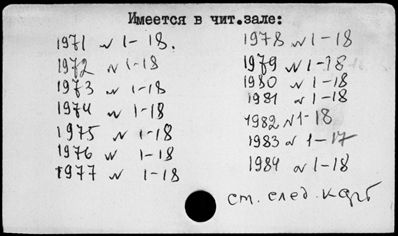 Имеется в чит.зале:
1971 № 1-18.
1972 № 1-18
1973 № 1-18
1974 № 1-18
1975 № 1-18
1976 № 1-18
1977 № 1-18
1978 № 1-18
1979 № 1-18
1980 № 1-18
1981 № 1-18
1982 № 1-18
1983 № 1-17
1984 № 1-18
ст. след. карт